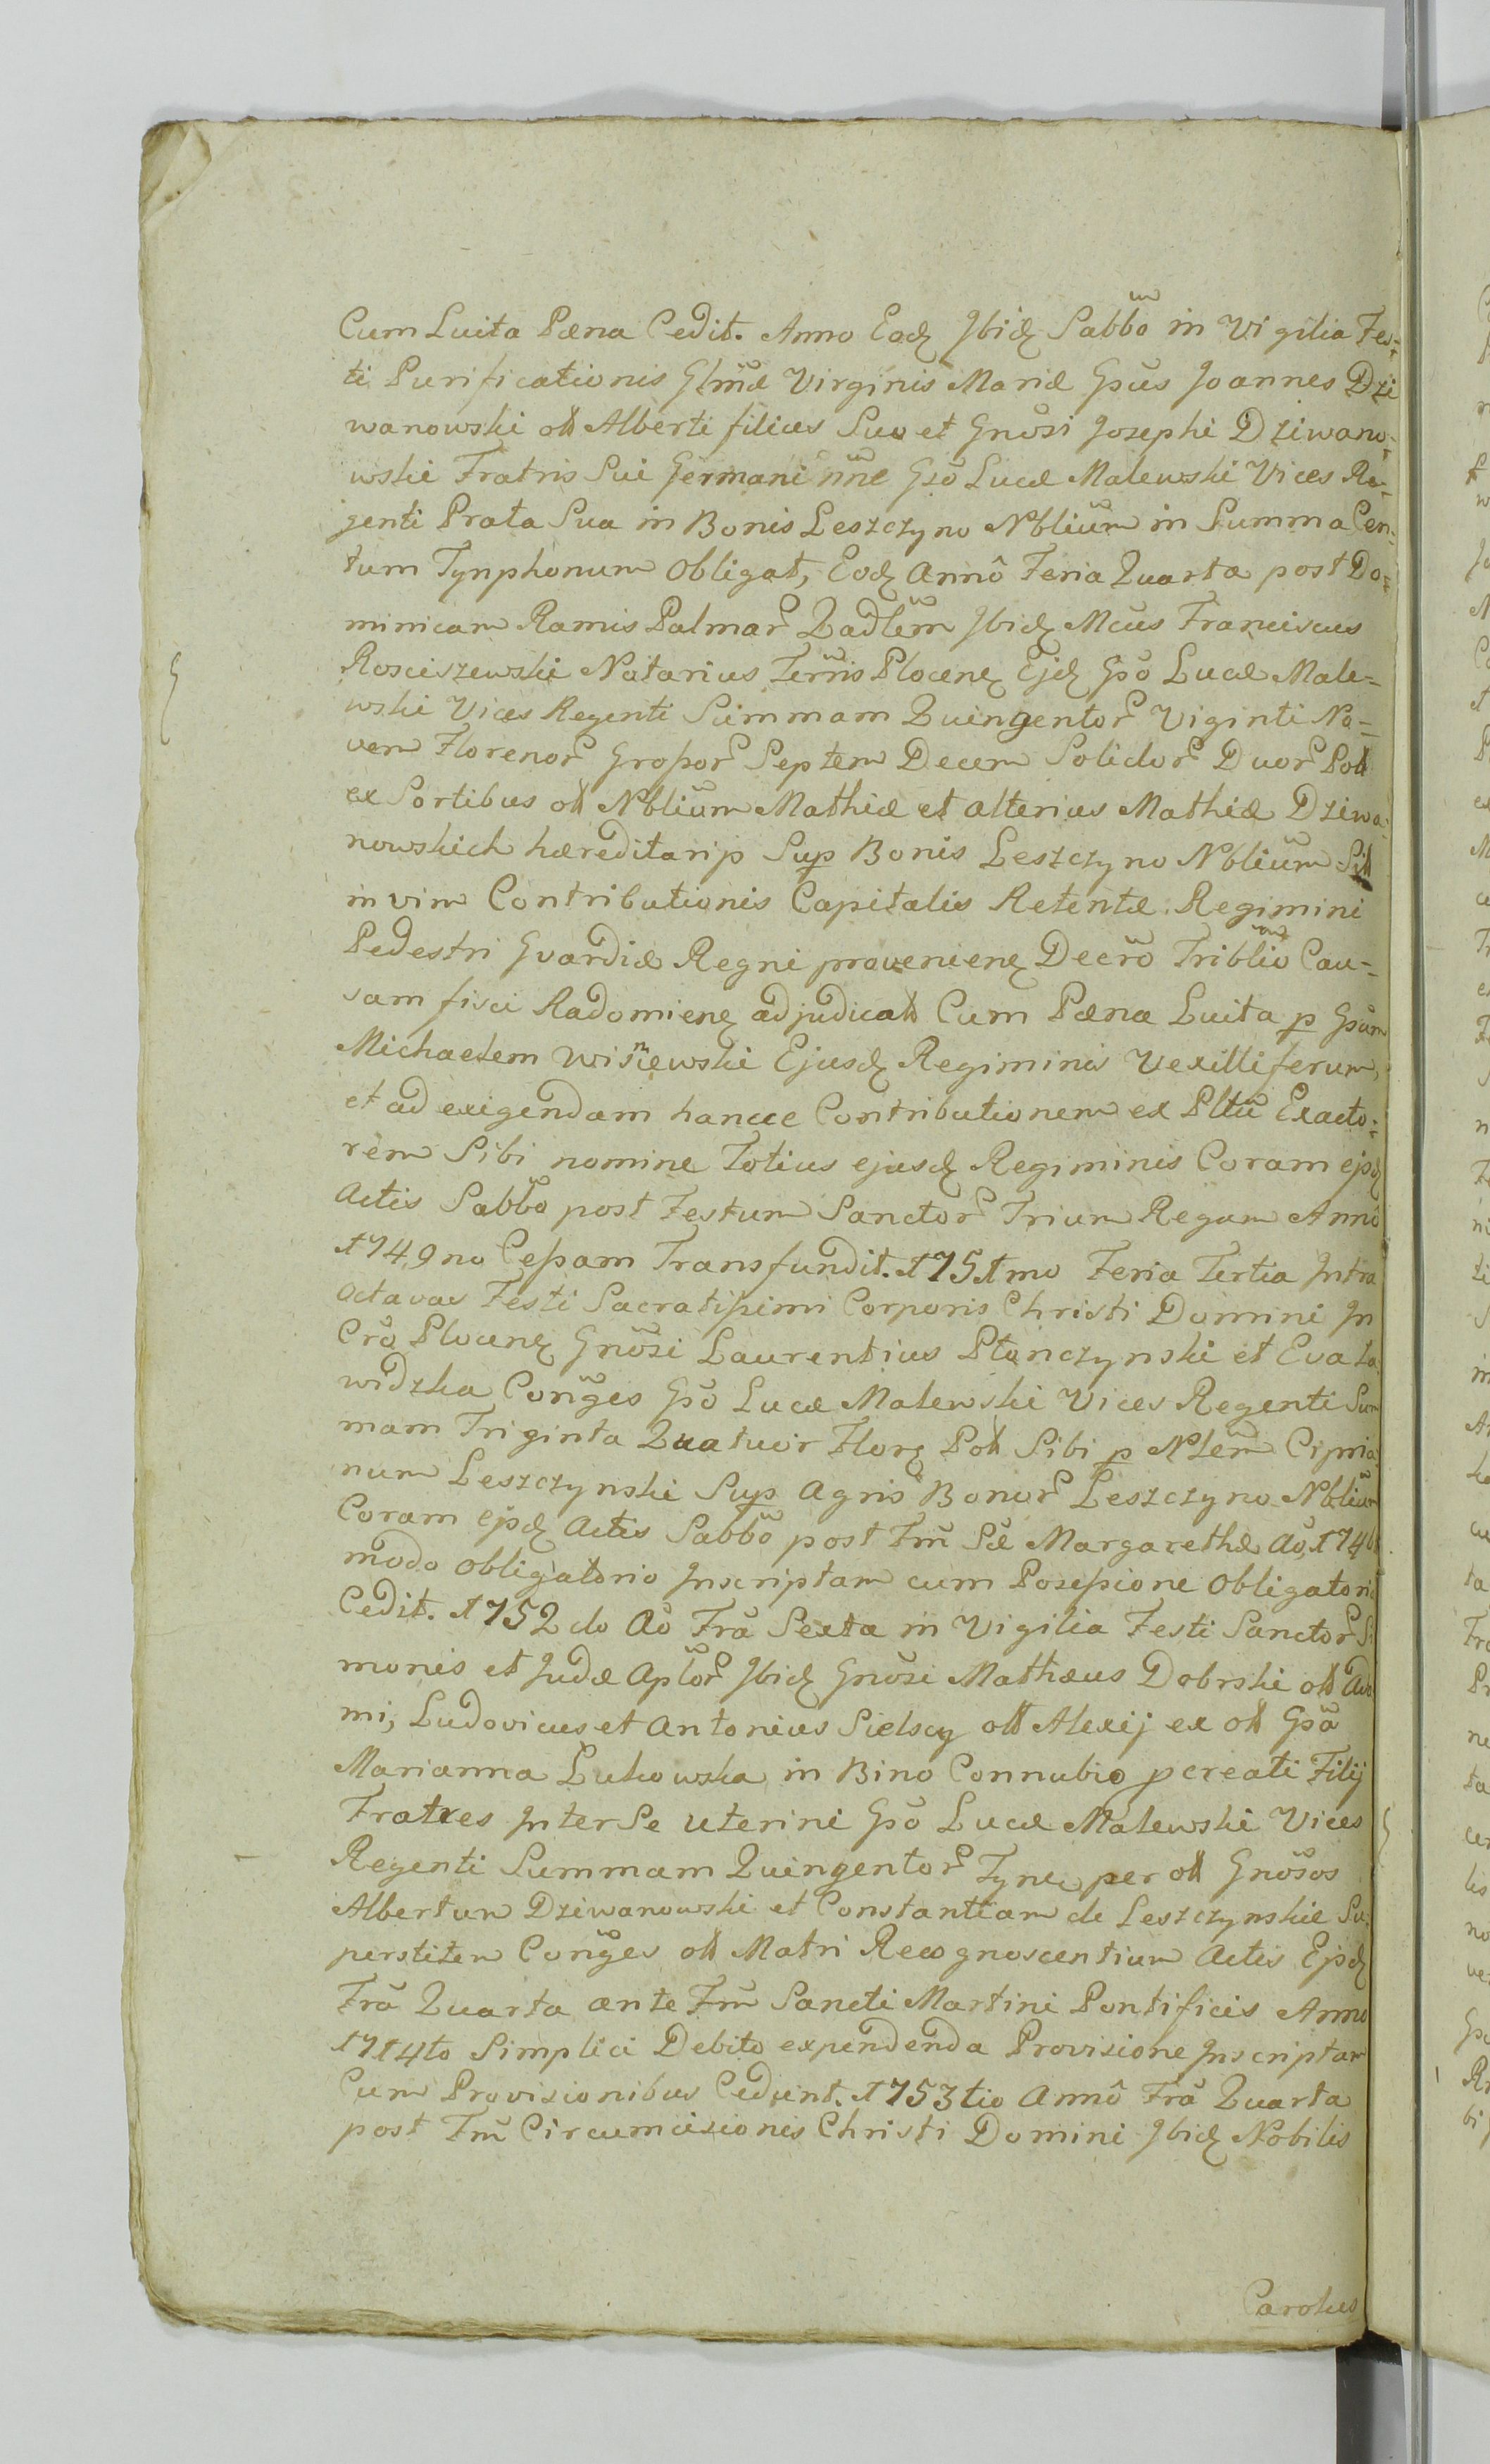 Cum Luita Pæna Cedit. Anno Eoḍ Ibiḍ Sabbõ in Vigilia Fes-
ti Purificationis Glm̃æ Virginis Mariæ Gsũs Joannes Dzi
wanowski oł Alberti filius Suo et Gnõsi Josephi Dziwano-
wski Fratris Sui Germani nñe Gsõ Lucæ Malewski Vices Re-
genti Prata Sua in Bonis Leszczyno Nbliũm in Summa Cen-
tum Tynphonum Obligat, Eoḍ Annô Feria Quarta post Do-
minicam Ramis Palmar̃ Qadlẽm Ibiḍ Mcũs Franciscus
Rosciszewski Notarius Terr̃is Plocenẹ Ejḍ Gsõ Lucæ Male=
wski Vices Regenti Summam Quingentor̃ Viginti No-
vem Florenor̃ Großor̃ Septem Decem Solidor̃ Duor̃ Poł
ex Sortibus oł Nbliũm Mathiæ et alterius Mathiæ Dziwa-
nowskich hæreditarijs Sup Bonis Leszczyno Nbliũm Sił
in vim Contributionis Capitalis Retentæ Regimini
Pedestri Gvardiæ Regni provenienẹ Decr̃o Triblĩo Cau-
sam fisci Radomienẹ adjudicał Cum Pæna Luita p Gsũm
Michaelem Wisniewski Ejusḍ Regiminis Vexilliferum
et ad exigendam hancce Contributionem ex Pltũ Exacto-
rem Sibi nomine Totius ejusḍ Regiminis Coram ejsḍ
Actis Sabbõ post Festum Sanctor̃ Trium Regum Annô
1749no Ceßam Transfundit. 1751mo Feria Tertia Intra
Octavas Festi Sacratißimi Corporis Christi Domini In
Crõ Plocenẹ Gnõsi Laurentius Płonczynski et Eva La
widzka Conũges Gsõ Lucæ Malewski Vices Regenti Sum
mam Triginta Quatuor Florẹ Poł Sibi p Nlẽm Cipria
num Leszczynski Sup Agris Bonor̃ Leszczyno Nbliũm
Coram ejsḍ Actis Sabbõ post Fm̃ Sæ Margarethæ Aõ 174
modo obligatorio Inscriptam cum Poseßione Obligatoria
Cedit. 1752do Aõ Frã Sexta in Vigilia Festi Sanctor̃ Si
monis et Judæ Aplõr̃ Ibiḍ Gnõsi Mathæus Dobrski oł Ada
mi, Ludovicus et Antonius Sielscy oł Alexij ex oł Gsã
Marianna Łukowska in Bino Connubio pcreati Filij
Fratres Inter Se Uterini Gsõ Lucæ Malewski Vices
Regenti Summam Quingentor̃ Tynẹ per oł Gnõsos
Albertum Dziwanowski et Constantiam de Leszczynskie Su-
perstitem Conũges oł Matri Recognoscentium Actis Ejsḍ
Frã Quarta ante Fm̃ Sancti Martini Pontificis Anno
1714to Simplici Debito expendenda Provisione Inscriptam
Cum Provisionibus Cedunt. 1753tio Annô Frã Quarta
post Fm̃ Circumcisionis Christi Domini Ibiḍ Nobilis
Carolus